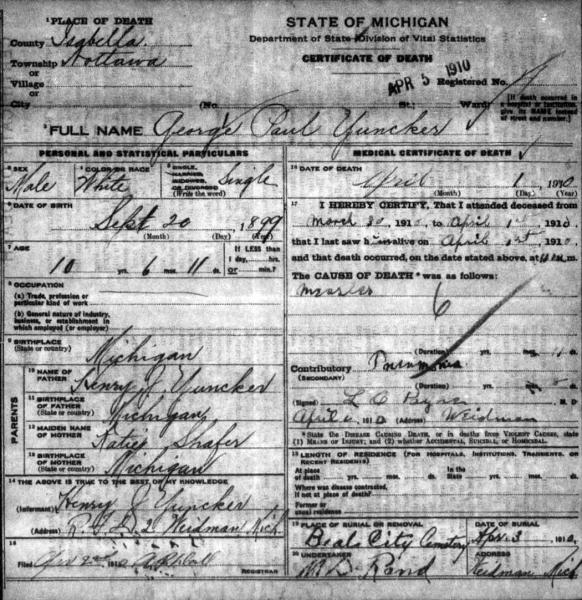 1 PLACE OF DEATH
County Isabella
Township Nottawa
or
Village
or
City
STATE OF MICHIGAN
Department of State—Division of Vital Statistics
CERTIFICATE OF DEATH
APR 5 1910
Registered No.
(No. St.; Ward)
[If death occurred in a hospital or institution, give the NAME instead of street and number.]
2 FULL NAME George Paul Yuncker
PERSONAL AND STATISTICAL PARTICULARS
3 SEX
Male
4 COLOR OR RACE
White
5 SINGLE, MARRIED, WIDOWED, OR DIVORCED
(Write the word)
Single
6 DATE OF BIRTH
Sept 20, 1899
(Month) (Day) (Year)
7 AGE
10 yrs. 6 mos. 11 ds.
If LESS than
1 day, hrs.
or min.?
8 OCCUPATION
(a) Trade, profession or
particular kind of work
(b) General nature of industry,
business, or establishment in
which employed (or employer)
9 BIRTHPLACE
(State or country)
Michigan
PARENTS
10 NAME OF
FATHER
Henry J Yuncker
11 BIRTHPLACE
OF FATHER
(State or country)
Michigan
12 MAIDEN NAME
OF MOTHER
Katie Shafer
13 BIRTHPLACE
OF MOTHER
(State or country)
Michigan
14 THE ABOVE IS TRUE TO THE BEST OF MY KNOWLEDGE
(Informant) Henry J Yuncker
(Address) R.F.D. 2 Weidman Mich
15
Filed Apr 2nd 1910
REGISTRAR
MEDICAL CERTIFICATE OF DEATH
16 DATE OF DEATH
April 1, 1910
(Month) (Day) (Year)
17 I HEREBY CERTIFY, That I attended deceased from
March 30, 1910, to April 1, 1910
that I last saw him alive on April 1st, 1910
and that death occurred, on the date stated above, at m.
The CAUSE OF DEATH* was as follows:
Measles
6
(Duration) yrs. mos. ds.
Contributory Pneumonia
(SECONDARY)
(Duration) yrs. mos. ds.
(Signed) M. D.
April 1910 (Address) Weidman
* State the DISEASE CAUSING DEATH, or in deaths from VIOLENT CAUSES, state
(1) MEANS OF INJURY; and (2) whether ACCIDENTAL, SUICIDAL or HOMICIDAL.
18 LENGTH OF RESIDENCE (FOR HOSPITALS, INSTITUTIONS, TRANSIENTS, OR RECENT RESIDENTS)
At place
of death yrs. mos. ds.
In the
State yrs. mos. ds.
Where was disease contracted,
if not at place of death?
Former or
usual residence
19 PLACE OF BURIAL OR REMOVAL
Beal City Cemetery
DATE OF BURIAL
Apr. 3, 1910
20 UNDERTAKER
Rand
ADDRESS
Weidman Mich